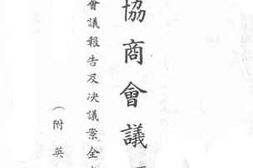 協商會議
會議報告及決議案全
(附英